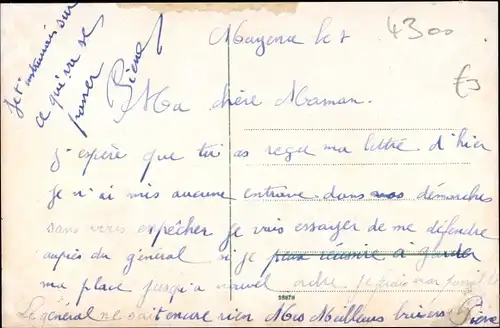 Mayence le 8
4300
Ma chère Maman.
J'espère que tu as reçu ma lettre d'hier
Je n'ai mis aucune entrave dans vos démarches
sans vous empêcher je vais essayer de me défendre
auprès du général si je peux réussir à garder
ma place jusqu'à nouvel ordre je
Le général ne sait encore rien Mes Meilleurs baisers Pierre
Je t'instruirais sur
ce qui va se
passer
Pierre